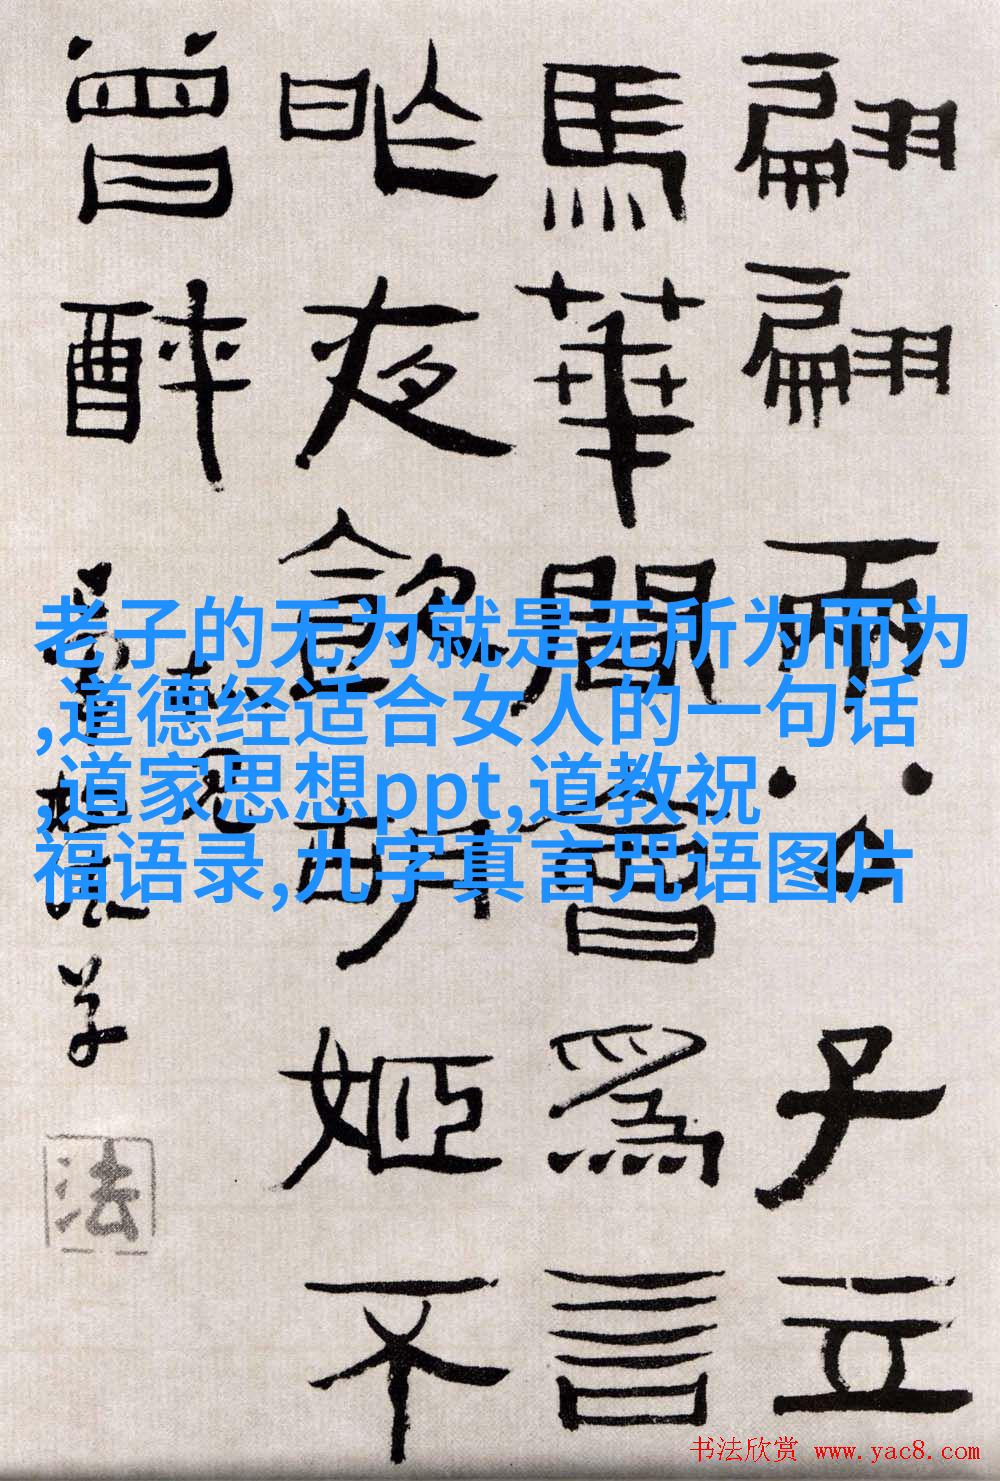 翩翩兩公子立
馬華間會爲言
昨夜飲胡姬不
曾醉
法
老子的无为就是无所为而为
,道德经适合女人的一句话
,道家思想ppt,道教祝
福语录,九字真言咒语图片
书法欣赏 www.yac8.com